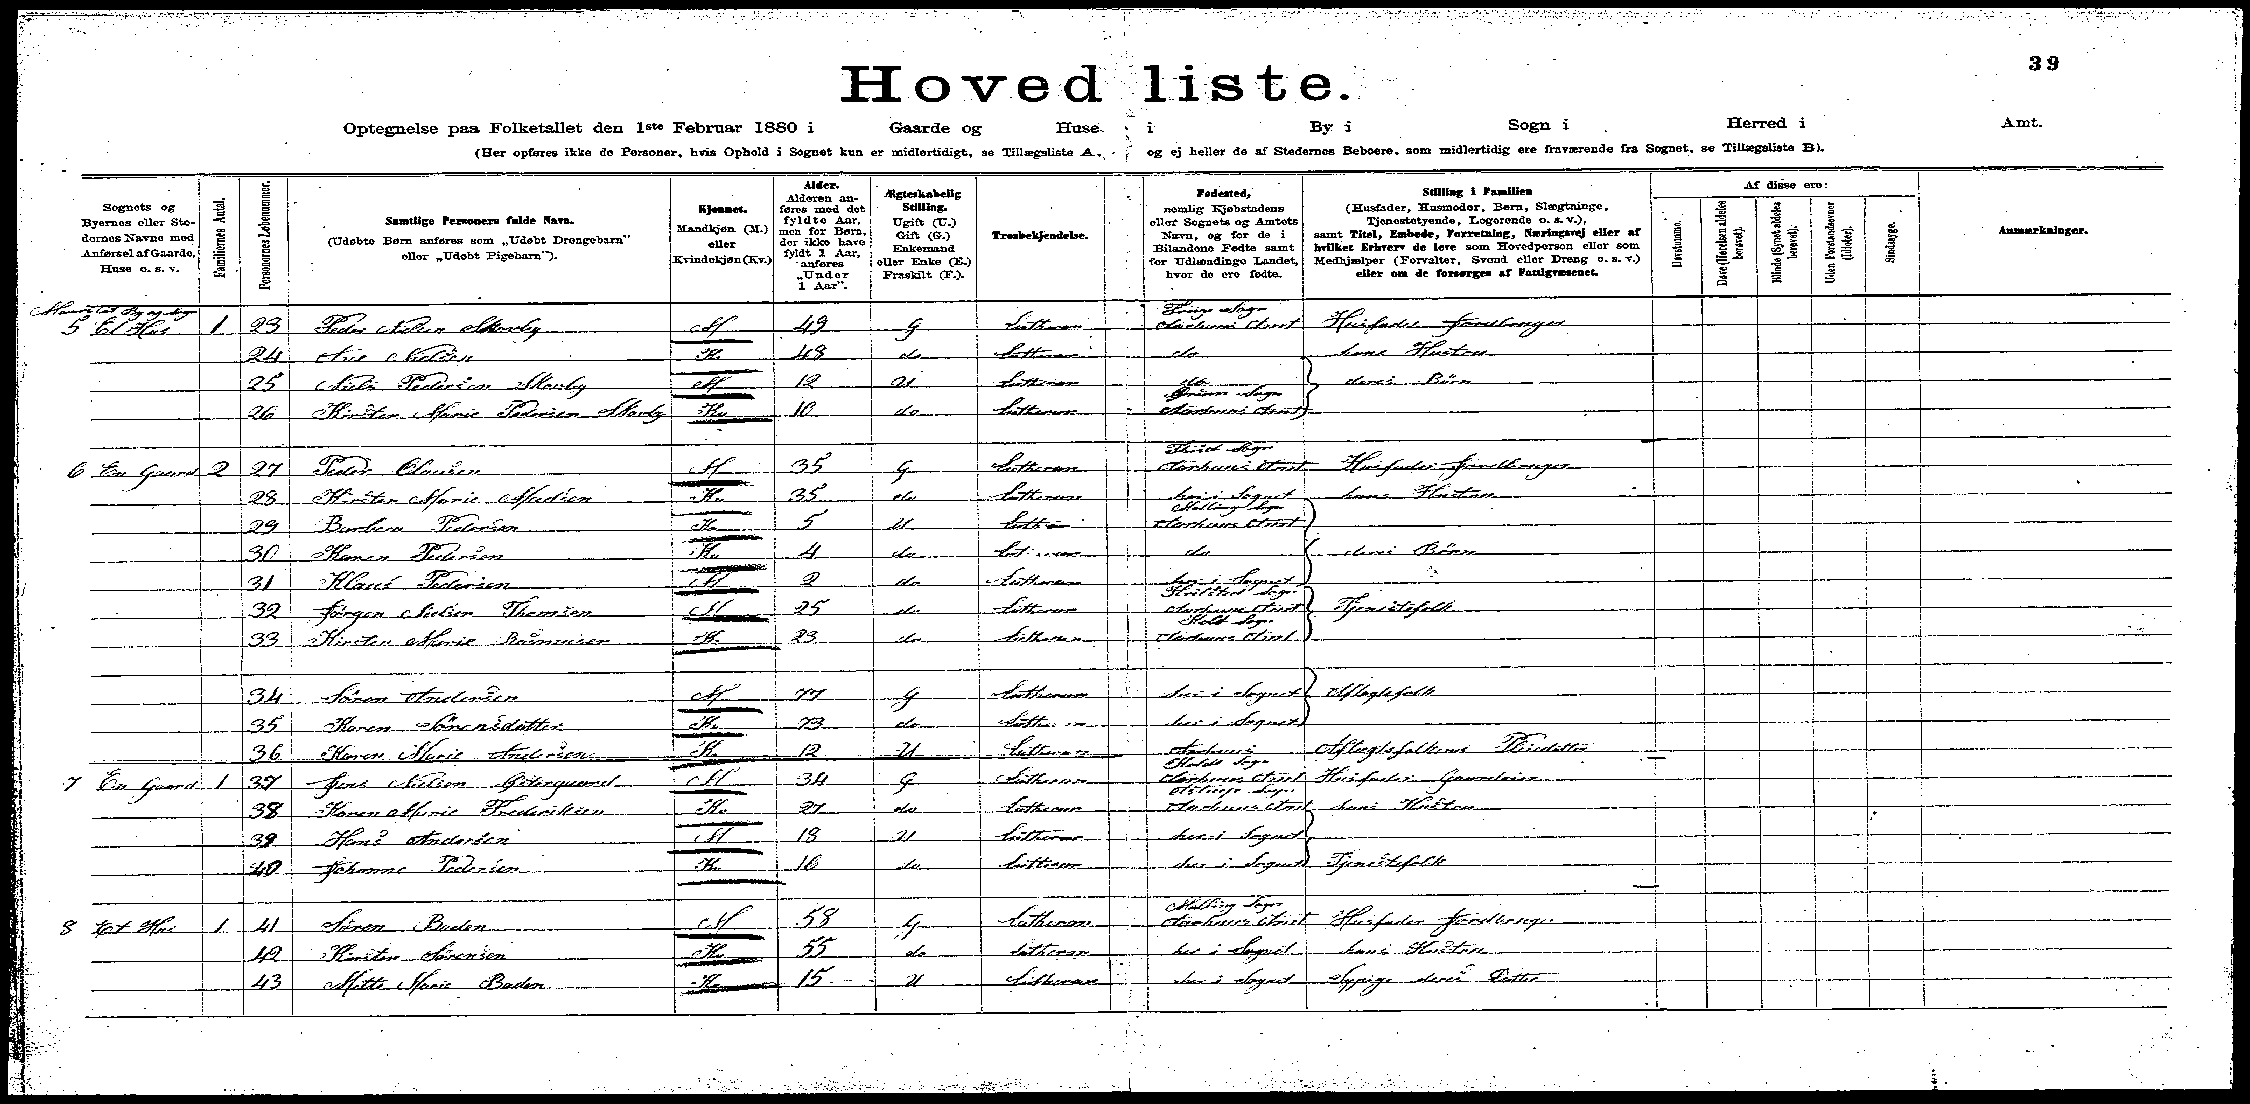 39
Hoved liste.
Optegnelse paa Folketallet den 1ste Februar 1880 i Gaarde og Huse i By i Sogn i Herred i Amt.
(Her opføres ikke de Personer, hvis Ophold i Sognet kun er midlertidigt, se Tillægsliste A, og ej heller de af Stedernes Beboere, som midlertidig ere fraværende fra Sognet, se Tillægsliste B).
Sognets og Byernes eller Stedernes Navne med Anførsel af Gaarde, Huse o. s. v.
Familiernes Antal.
Personernes Løbenummer.
Samtlige Personers fulde Navn.
(Udøbte Børn anføres som „Udøbt Drengebarn" eller „Udøbt Pigebarn").
Kjønnet.
Mandkjøn (M.) eller Kvindekjøn (Kv.)
Alder.
Alderen anføres med det fyldte Aar, men for Børn, der ikke have fyldt 1 Aar, anføres „Under 1 Aar".
Ægteskabelig Stilling.
Ugift (U.) Gift (G.) Enkemand eller Enke (E.) Fraskilt (F.).
Troesbekjendelse.
Fødested,
nemlig Kjøbstadens eller Sognets og Amtets Navn, og for de i Bilandene Fødte samt for Udlændinge Landet, hvor de ere fødte.
Stilling i Familien
(Husfader, Husmoder, Børn, Slægtninge, Tjenestetyende, Logerende o. s. v.), samt Titel, Embede, Forretning, Næringsvej eller af hvilket Erhverv de leve som Hovedperson eller som Medhjælper (Forvalter, Svend eller Dreng o. s. v.) eller om de forsørges af Fattigvæsenet.
Af disse ere:
Døvstumme.
Døve (Hørelsen aldeles berøvet).
Blinde (Synet aldeles berøvet).
Uden Forstandsevner (Idioter).
Sindssyge.
Anmærkninger.
By og Sogn
5 Et Hus 1 23 Peder Nielsen Skovby M 49 G Lutheran Sogn Aarhuus Amt Husfader Jordbruger
24 Nielsen Kv 48 do Lutheran do hans Hustru
25 Niels Pedersen Skovby M 12 U Lutheran do deres Børn
26 Kirsten Marie Pedersen Skovby Kv 10 do Lutheran Sogn Aarhuus Amt
6 En Gaard 2 27 Peder Clausen M 35 G Lutheran Sogn Aarhuus Amt Husfader Jordbruger
28 Kirsten Marie Madsen Kv 35 do Lutheran her i Sognet hans Hustru
29 Barbara Pedersen Kv 5 U Luth Malling Sogn Aarhuus Amt
30 Karen Pedersen Kv 4 do Lutheran do deres Børn
31 Klaus Pedersen M 2 do Lutheran her i Sognet
32 Jørgen Nielsen Thomsen M 25 do Lutheran Sogn Aarhuus Amt Tjenestefolk
33 Kirsten Marie Rasmussen Kv 23 do Lutheran Sogn Aarhuus Amt
34 Sören Andersen M 77 G Lutheran her i Sognet Aftægtsfolk
35 Karen Sörensdatter Kv 73 do Luth her i Sognet
36 Karen Marie Andersen Kv 12 U Lutheran Aarhuus Aftægtsfolkenes
7 En Gaard 1 37 Jens Nielsen M 34 G Lutheran Sogn Aarhuus Amt Husfader Gaardeier
38 Karen Marie Frederiksen Kv 27 do Lutheran Sogn Aarhuus Amt hans Hustru
39 Hans Andersen M 18 U Lutheran her i Sognet
40 Johanne Pedersen Kv 16 do Lutheran her i Sognet Tjenestefolk
8 Et Hus 1 41 Sören Baden M 58 G Lutheran Malling Sogn Aarhuus Amt Husfader Jordbruger
42 Kirsten Sörensen Kv 55 do Lutheran her i Sognet hans Hustru
43 Mette Marie Baden Kv 15 U Lutheran her i Sognet Sypige deres Datter